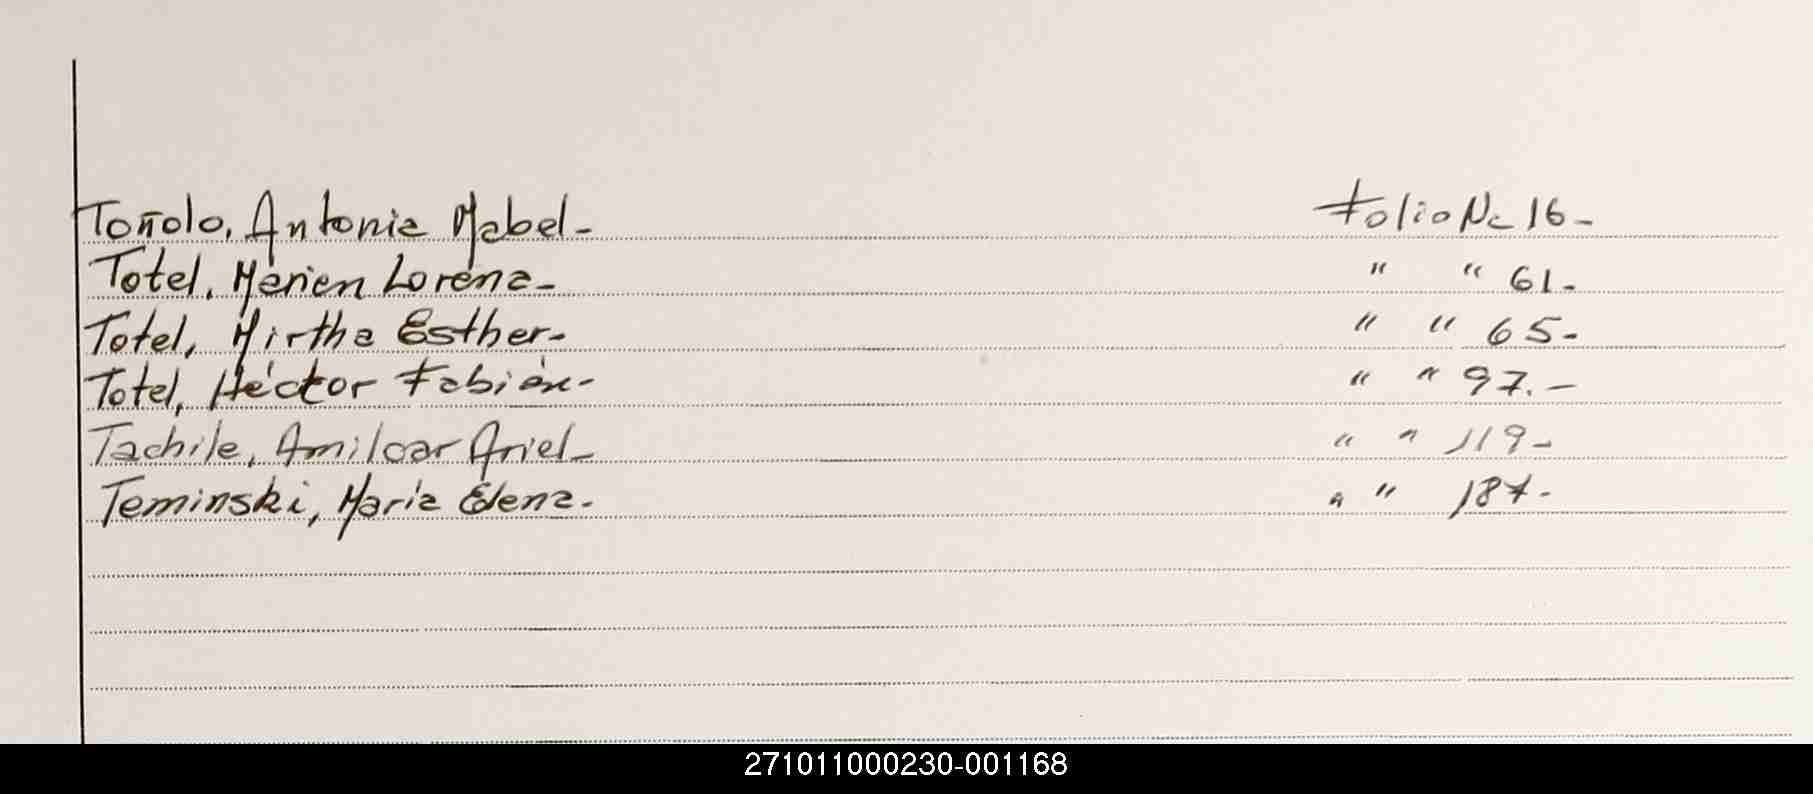 Toñolo, Antonia Mabel- Folio Nº 16-
Totel, Marien Lorena- " " 61-
Totel, Mirtha Esther- " " 65-
Totel, Héctor Fabián- " " 97.-
Tachile, Amilcar Ariel- " " 119-
Teminski, Maria Elena- " " 187-
271011000230-001168